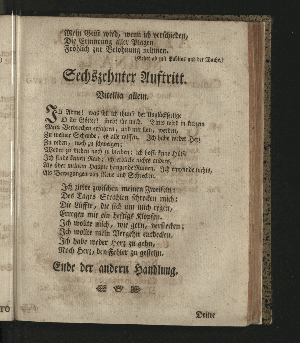 Mein Geist wird, wenn ich verschieden,
Die Erinnrung aller Plagen
Fröhlich zur Belohnung nehmen.
(Gehet ab mit Publius und der Wache.)
Sechszehnter Auftritt.
Vitellia allein.
Ich Arme! was soll ich thun? der Unglückselige
O ihr Götter! stirbt für mich. Titus wird in kurzem
Mein Verbrechen erfahren, und mit ihm, werden,
Zu meiner Schande, es alle wissen. Ich habe weder Herz
Zu reden, noch zu schweigen;
Weder zu fliehen noch zu bleiben; ich hoffe keine Hülfe
Ich finde keinen Rath; ich erblicke nichts anders,
Als über meinem Haupte hangende Ruinen. Ich empfinde nichts,
Als Bewegungen von Reue und Schrecken.
Ich zittre zwischen meinen Zweifeln:
Des Tages Strahlen schrecken mich:
Die Lüffte, die sich um mich regen,
Erregen mir ein heftigs Klopfen.
Ich wollte mich, wie gern, verstecken;
Ich wollte mein Vergehn entdecken.
Ich habe weder Herz zu gehn,
Noch Herz, den Fehler zu gestehn.
Ende der andern Handlung.
Dritte